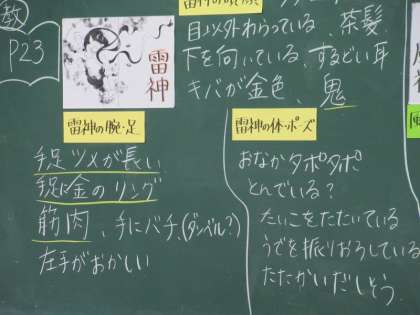 教
P23
雷神
目以外わらっている、茶髪
下を向いている、するどい耳
キバが金色、鬼
雷神の腕・足
手足ツメが長い
手足に金のリング
筋肉、手にバチ、(ダンベル?)
左手がおかしい
雷神の体・ポーズ
おなかタポタポ
とんでいる?
たいこをたたいている
うでを振りおろしている
たたかいだしそう